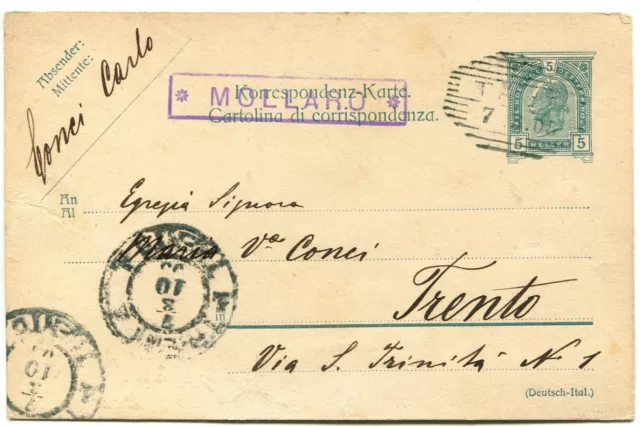 Absender:
Mittente:
Conci Carlo
* MOLLARO *
Korrespondenz-Karte.
Cartolina di corrispondenza.
5
5 HELLER 5
7
An
Al
Egregia Signora
Maria Va Conci
Trento
Via S. Trinità N 1
(Deutsch-Ital.)